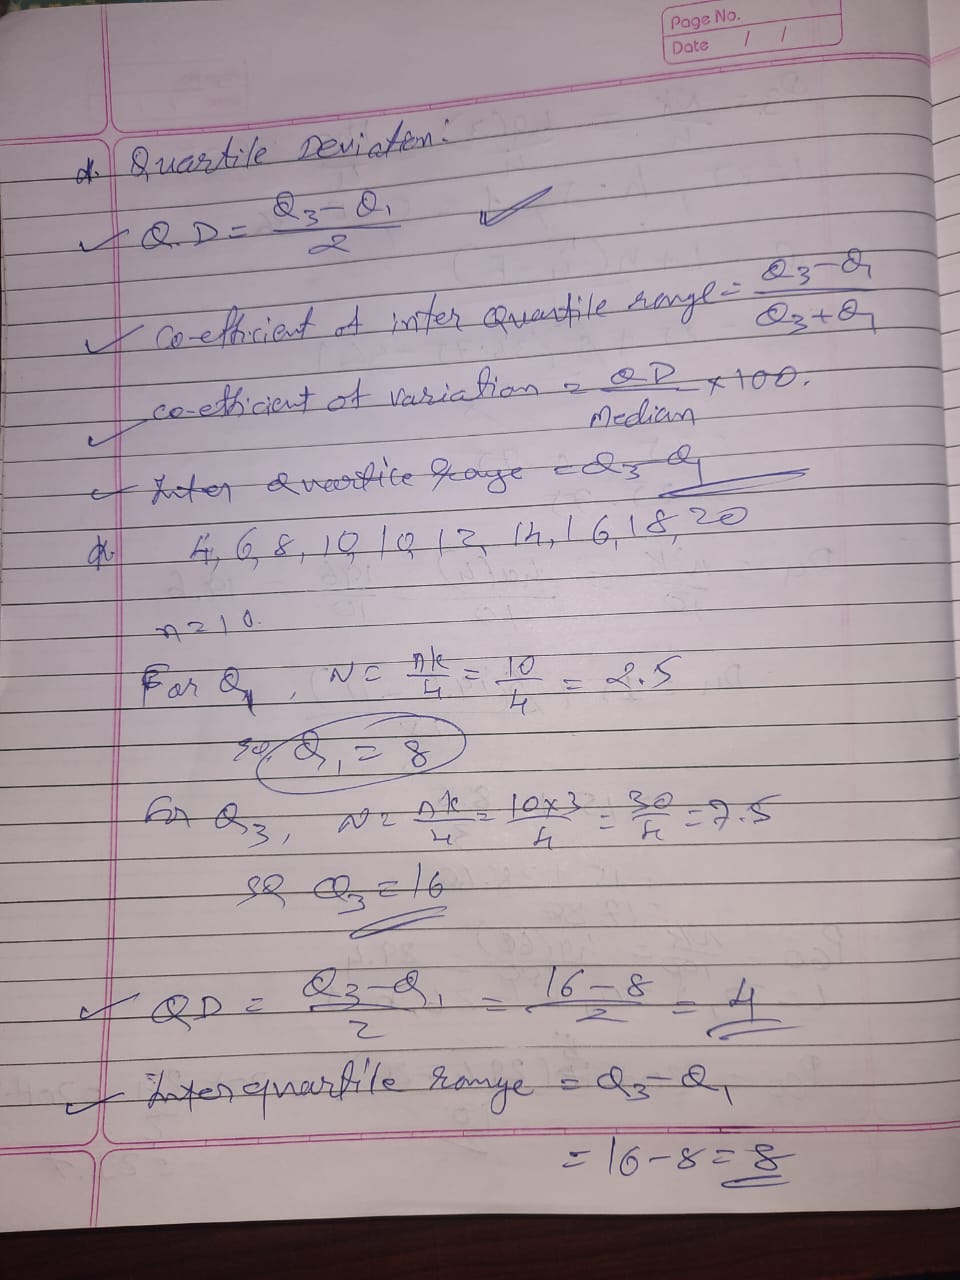 Page No.
Date / /
Quartile Deviation:
Q.D = Q3 - Q1 / 2
co-efficient of inter Quartile range = Q3 - Q1 / Q3 + Q1
co-efficient of variation = QD / Median × 100.
Inter Quartile Range = Q3 - Q1
4, 6, 8, 10, 10, 12, 14, 16, 18, 20
n = 10.
For Q1, N = nk/4 = 10/4 = 2.5
so, Q1 = 8
For Q3, N = nk/4 = 10×3/4 = 30/4 = 7.5
so Q3 = 16
QD = Q3 - Q1 / 2 = 16 - 8 / 2 = 4
Inter quartile range = Q3 - Q1
= 16 - 8 = 8